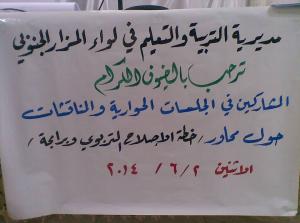 مديرية التربية والتعليم في لواء المزار الجنوبي
ترحب بالضيوف الكرام
المشاركين في الجلسات الحوارية والناقشات
حول محاور / خطة الاصلاح التربوي وبرامجة /
الاثنين ٢ / ٦ / ٢٠١٤